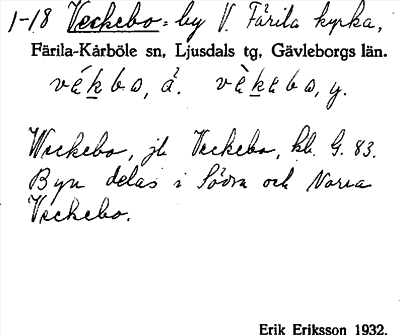 1-18 Veckebo = by V. Färila kyrka,
Färila-Kårböle sn, Ljusdals tg, Gävleborgs län.
vékbo, ä. vèkebo, y.
Weckebo, jb Veckebo, kb. G. 83.
Byn delas i Södra och Norra
Veckebo.
Erik Eriksson 1932.